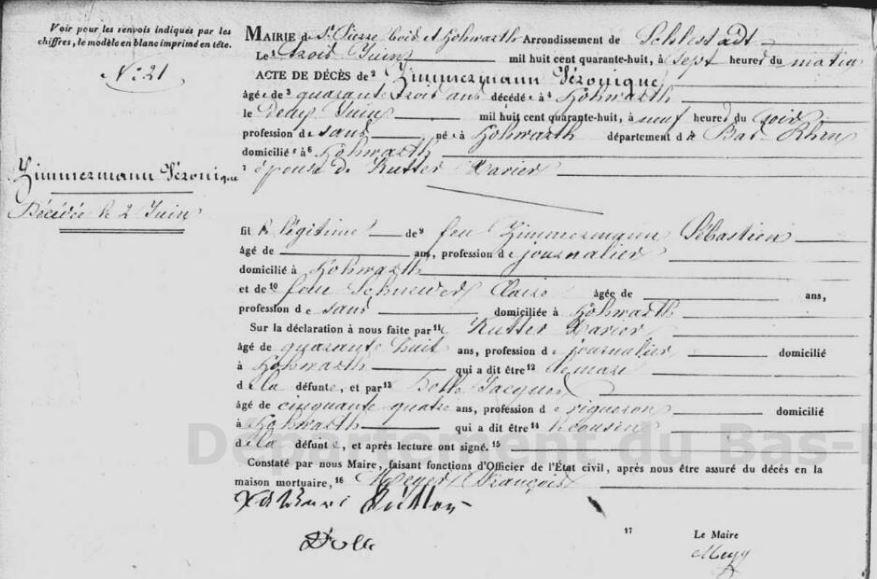 Voir pour les renvois indiqués par les
chiffres, le modèle en blanc imprimé en tête.
N° 21
Zimmermann Véronique
Décédée le 2 Juin
MAIRIE de St Pierre bois et Hohwarth Arrondissement de Schlestadt
Le 1 trois Juin mil huit cent quarante-huit, à sept heures du matin
ACTE DE DÉCÈS de 2 Zimmermann Véronique
âgée de 3 quarante trois ans décédée à 4 Hohwarth
le deux Juin mil huit cent quarante-huit, à neuf heures du soir
profession de sans née à Hohwarth département du Bas Rhin
domiciliée à 6 Hohwarth
7 épouse de Rutter Xavier
fille légitime de 9 feu Zimmermann Sébastien
âgé de ans, profession de journalier
domicilié à Hohwarth
et de 10 feu Claire âgée de ans,
profession de sans domiciliée à Hohwarth
Sur la déclaration à nous faite par 11 Rutter Xavier
âgé de quarante huit ans, profession de journalier domicilié
à Hohwarth qui a dit être 12 le mari
de la défunte, et par 13 Jacques
âgé de cinquante quatre ans, profession de vigneron domicilié
à Hohwarth qui a dit être 14 le cousin
de la défunte, et après lecture ont signé. 15
Constaté par nous Maire, faisant fonctions d'Officier de l'État civil, après nous être assuré du décès en la
maison mortuaire, 16 François
17 Le Maire
Département du Bas-R